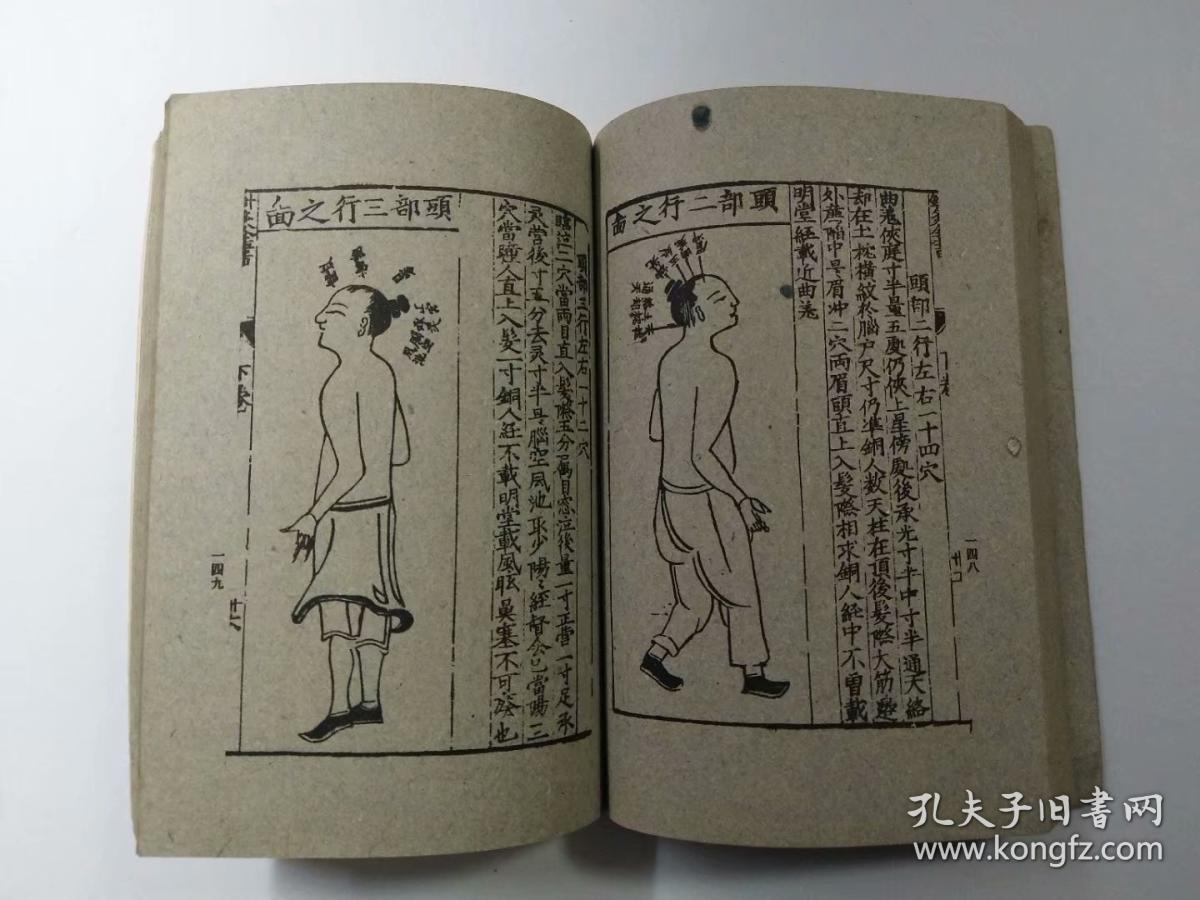 頭部二行左右一十四穴
曲差俠庭寸半量五處仍俠上星傍處後承光寸半中寸半通天絡
却在土枕横紋於腦户尺寸仍準銅人数天柱在頂後髮際大筋
外廉陷中是眉冲二穴两眉頭直上入髮際相求銅人経中不曽載
明堂経載近曲差
頭部二行之面
一四八
頭部三行左右一十二穴
臨泣二穴當両目直入髮際五分属目窓泣後量一寸正营一寸足承
灵营後寸五分去灵寸半是腦空風池取少陽経督会當陽二
穴當瞳人直上入髮一寸銅人経不載明堂載風眩鼻塞不可也
頭部三行之面
下卷
一四九
孔夫子旧書网
www.kongfz.com